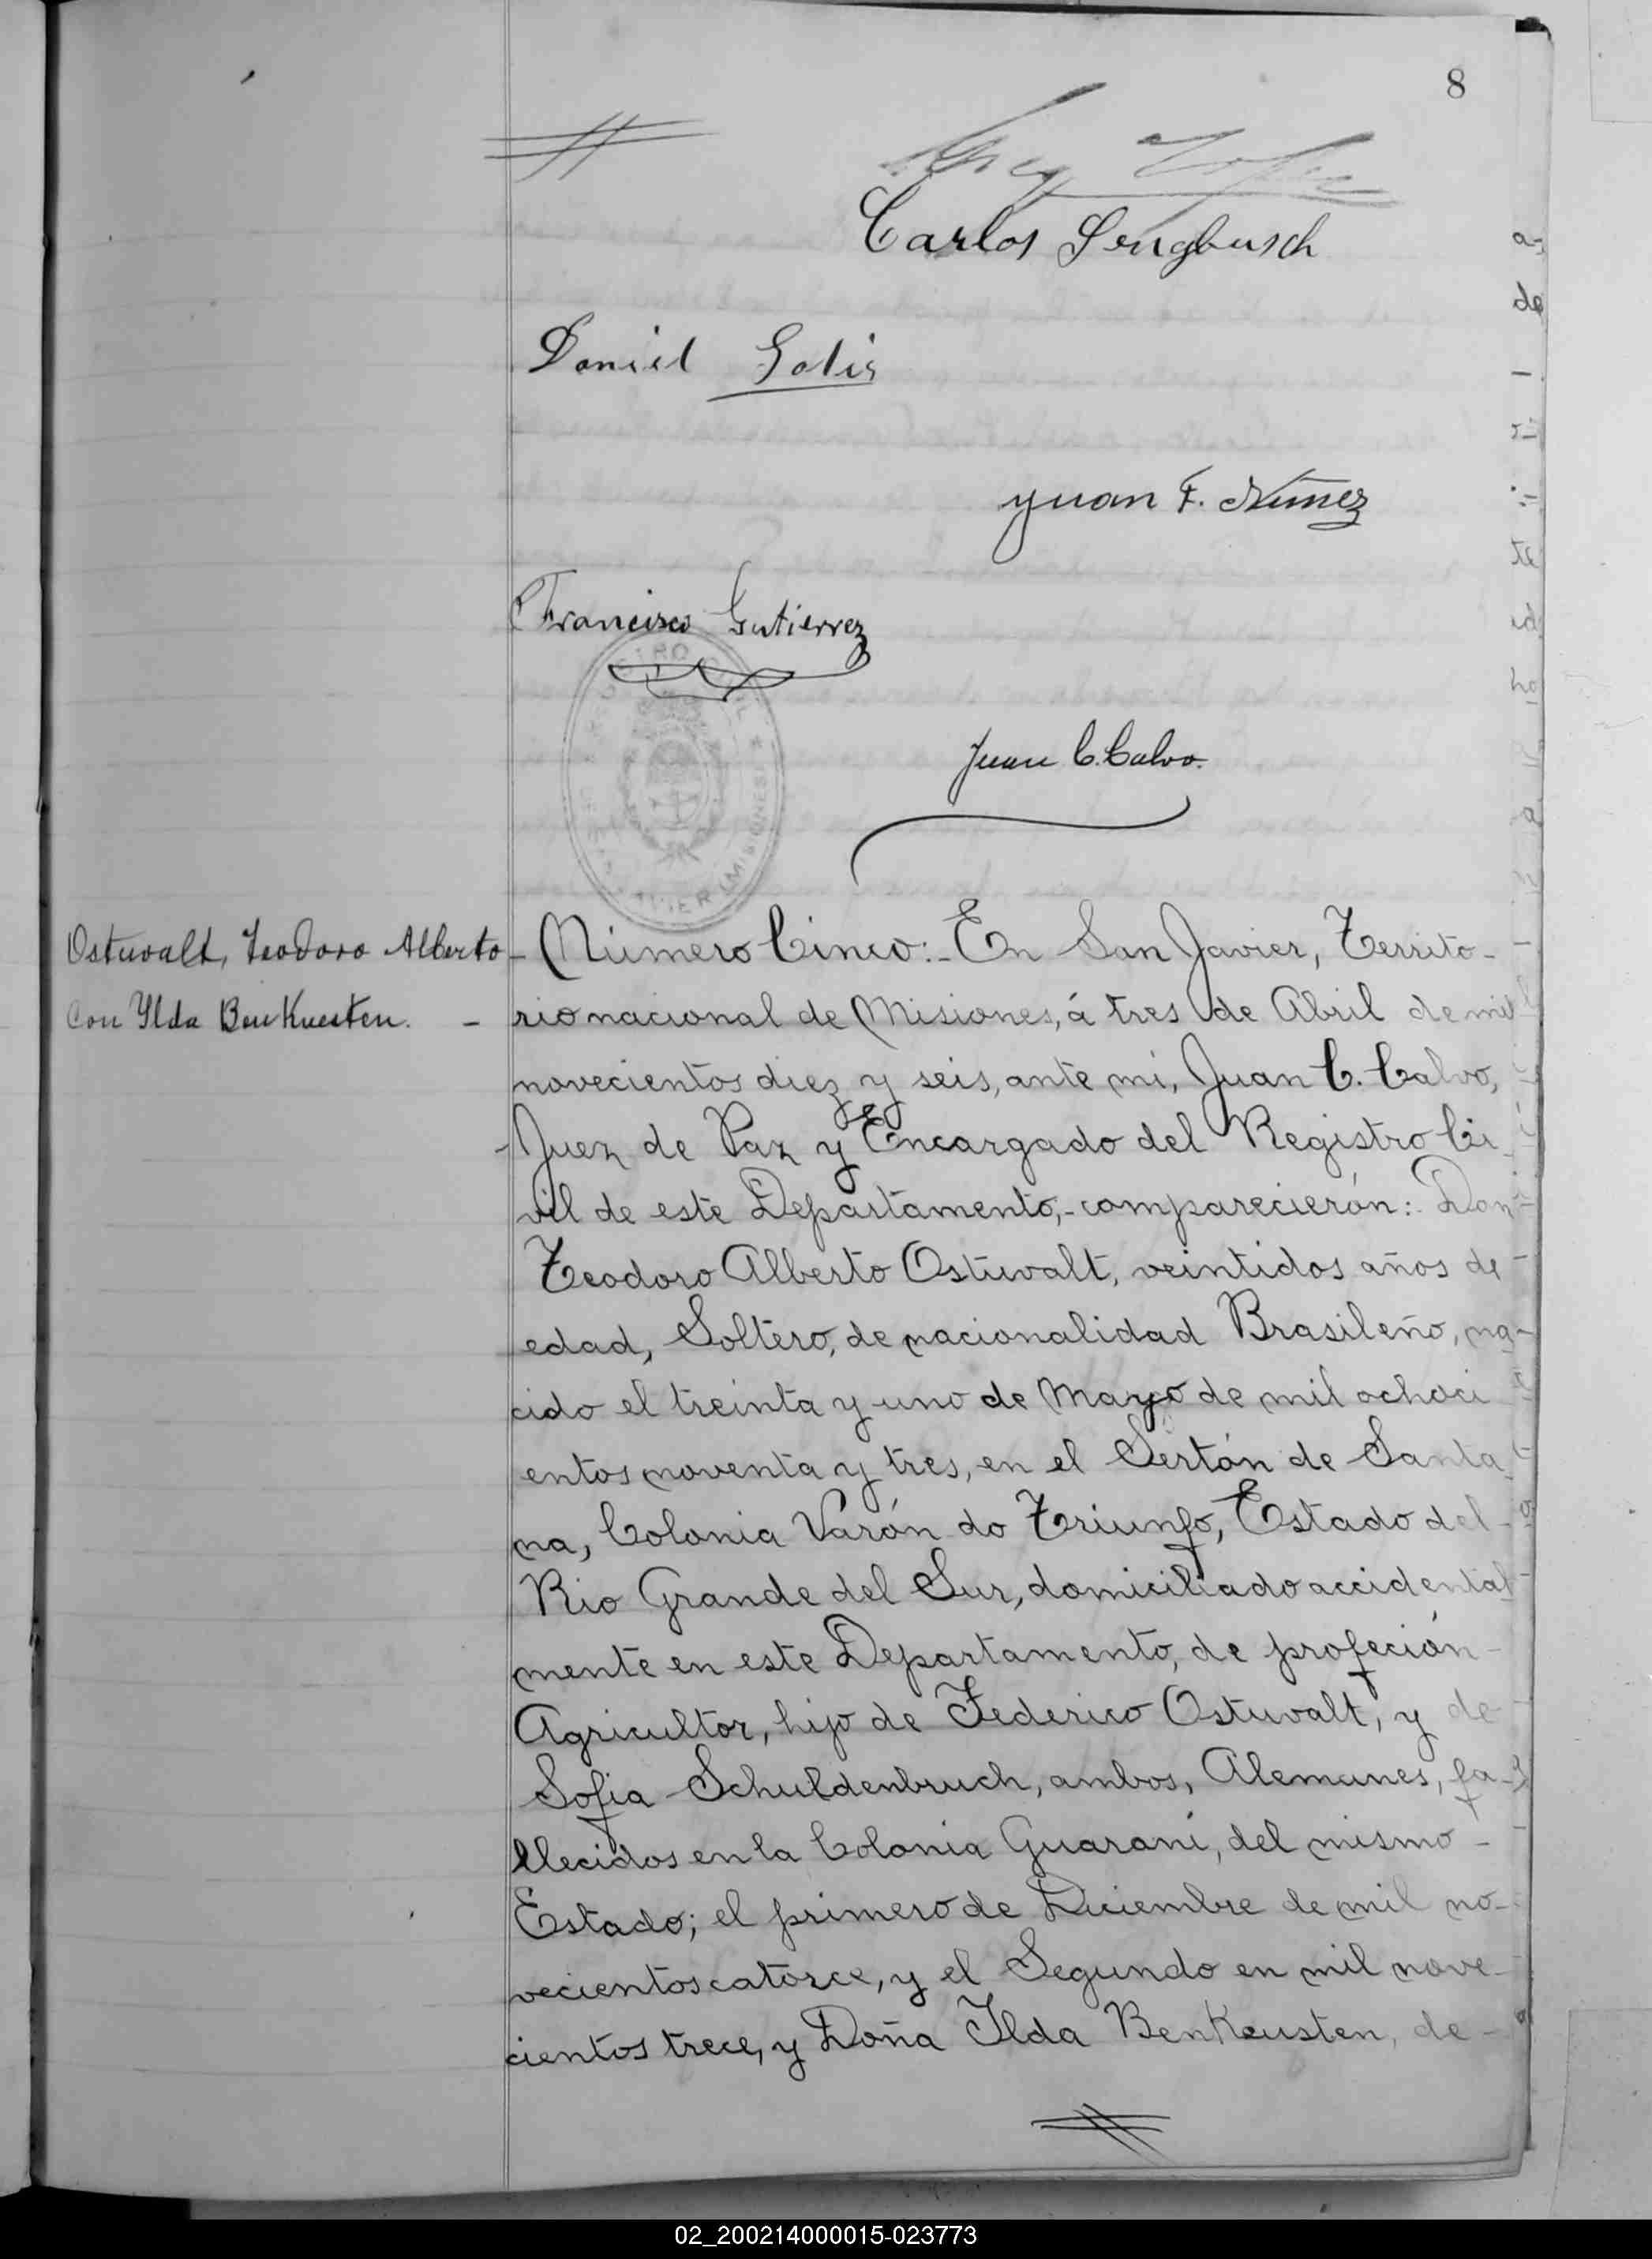 8
Carlos Sengbusch
Daniel Solis
Juan F. Núñez
Francisco Gutierrez
Juan C. Calvo.
Ostuvalt, Teodoro Alberto -
Con Ylda Benkuesten. -
Número Cinco:- En San Javier, Territo-
rio nacional de Misiones, á tres de Abril de mil
novecientos diez y seis, ante mi, Juan C. Calvo,
Juez de Paz y Encargado del Registro Ci
vil de este Departamento,- comparecierón: Don
Teodoro Alberto Ostuvalt, veintidos años de
edad, Soltero, de nacionalidad Brasileño, na-
cido el treinta y uno de Mayo de mil ochoci
entos noventa y tres, en el Sertón de Santa
na, Colonia Varón do Triunfo, Estado del
Rio Grande del Sur, domiciliado accidental
mente en este Departamento, de profeción
Agricultor, hijo de Federico Ostuvalt, y de
Sofia Schuldenbruch, ambos, Alemanes, fa-
llecidos en la Colonia Guarani, del mismo -
Estado; el primero de Diciembre de mil no-
vecientos catorce, y el Segundo en mil nove-
cientos trece, y Doña Ilda Benkeusten, de -
02_200214000015-023773